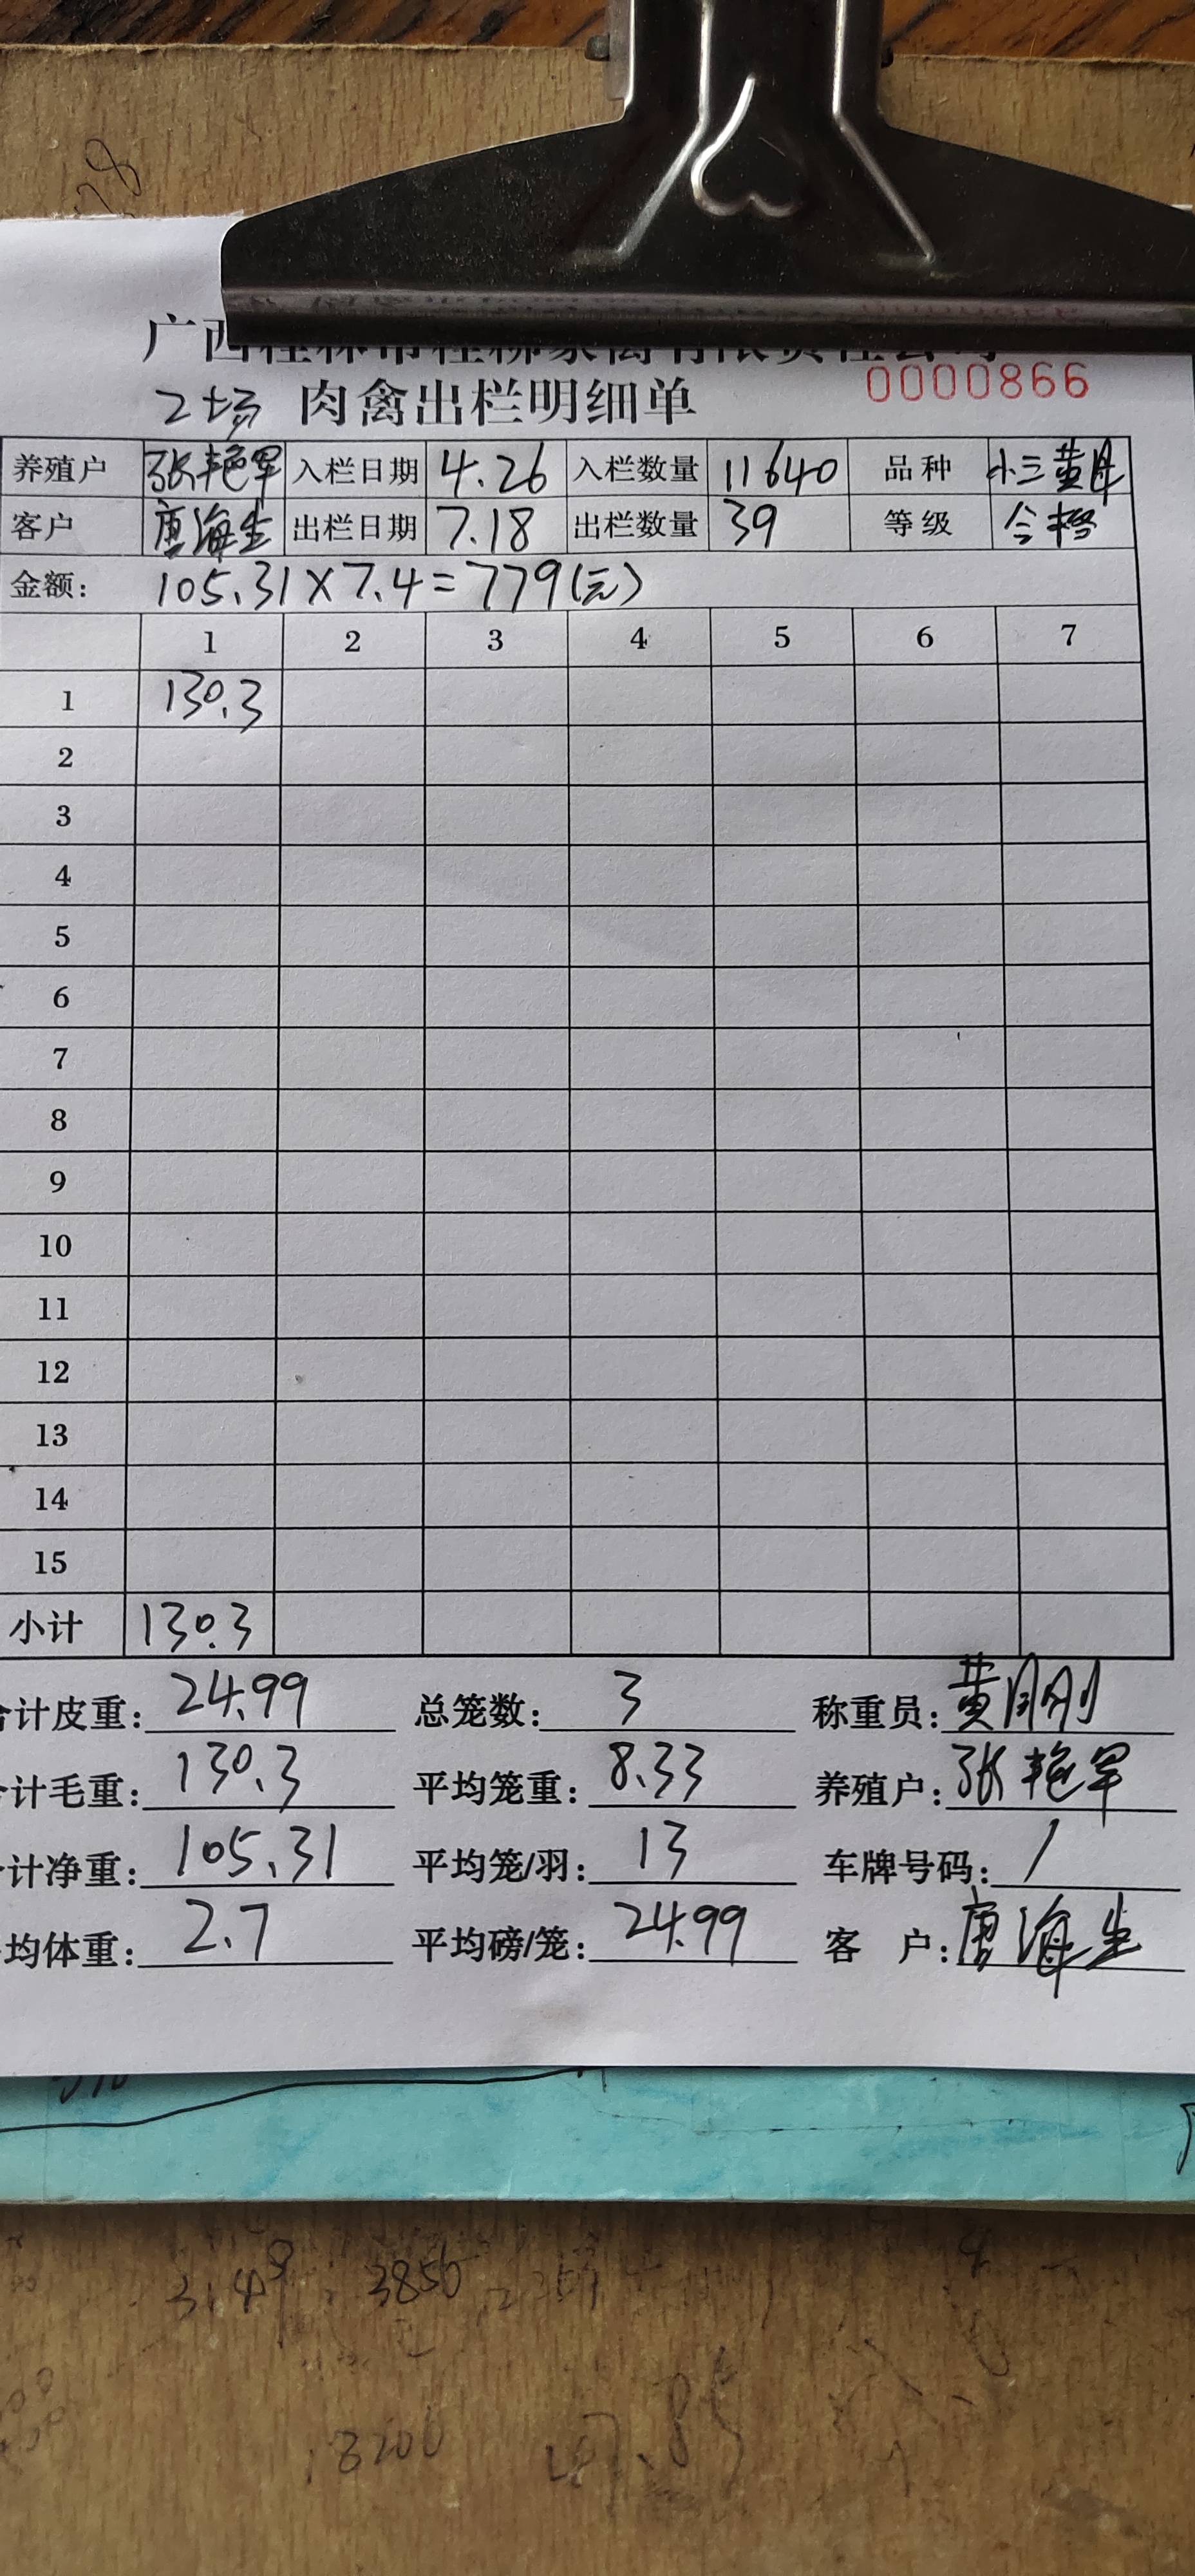 广西桂林市桂柳家禽有限责任公司
0000866
2场 肉禽出栏明细单
养殖户 张艳军 入栏日期 4.26 入栏数量 11640 品种 小三黄母
客户 唐海生 出栏日期 7.18 出栏数量 39 等级 合格
金额: 105.31×7.4=779(元)
1 2 3 4 5 6 7
1 130.3
2
3
4
5
6
7
8
9
10
11
12
13
14
15
小计 130.3
合计皮重: 24.99 总笼数: 3 称重员: 黄刚
计毛重: 130.3 平均笼重: 8.33 养殖户: 张艳军
计净重: 105.31 平均笼/羽: 13 车牌号码: /
均体重: 2.7 平均磅/笼: 24.99 客 户: 唐海生
3850